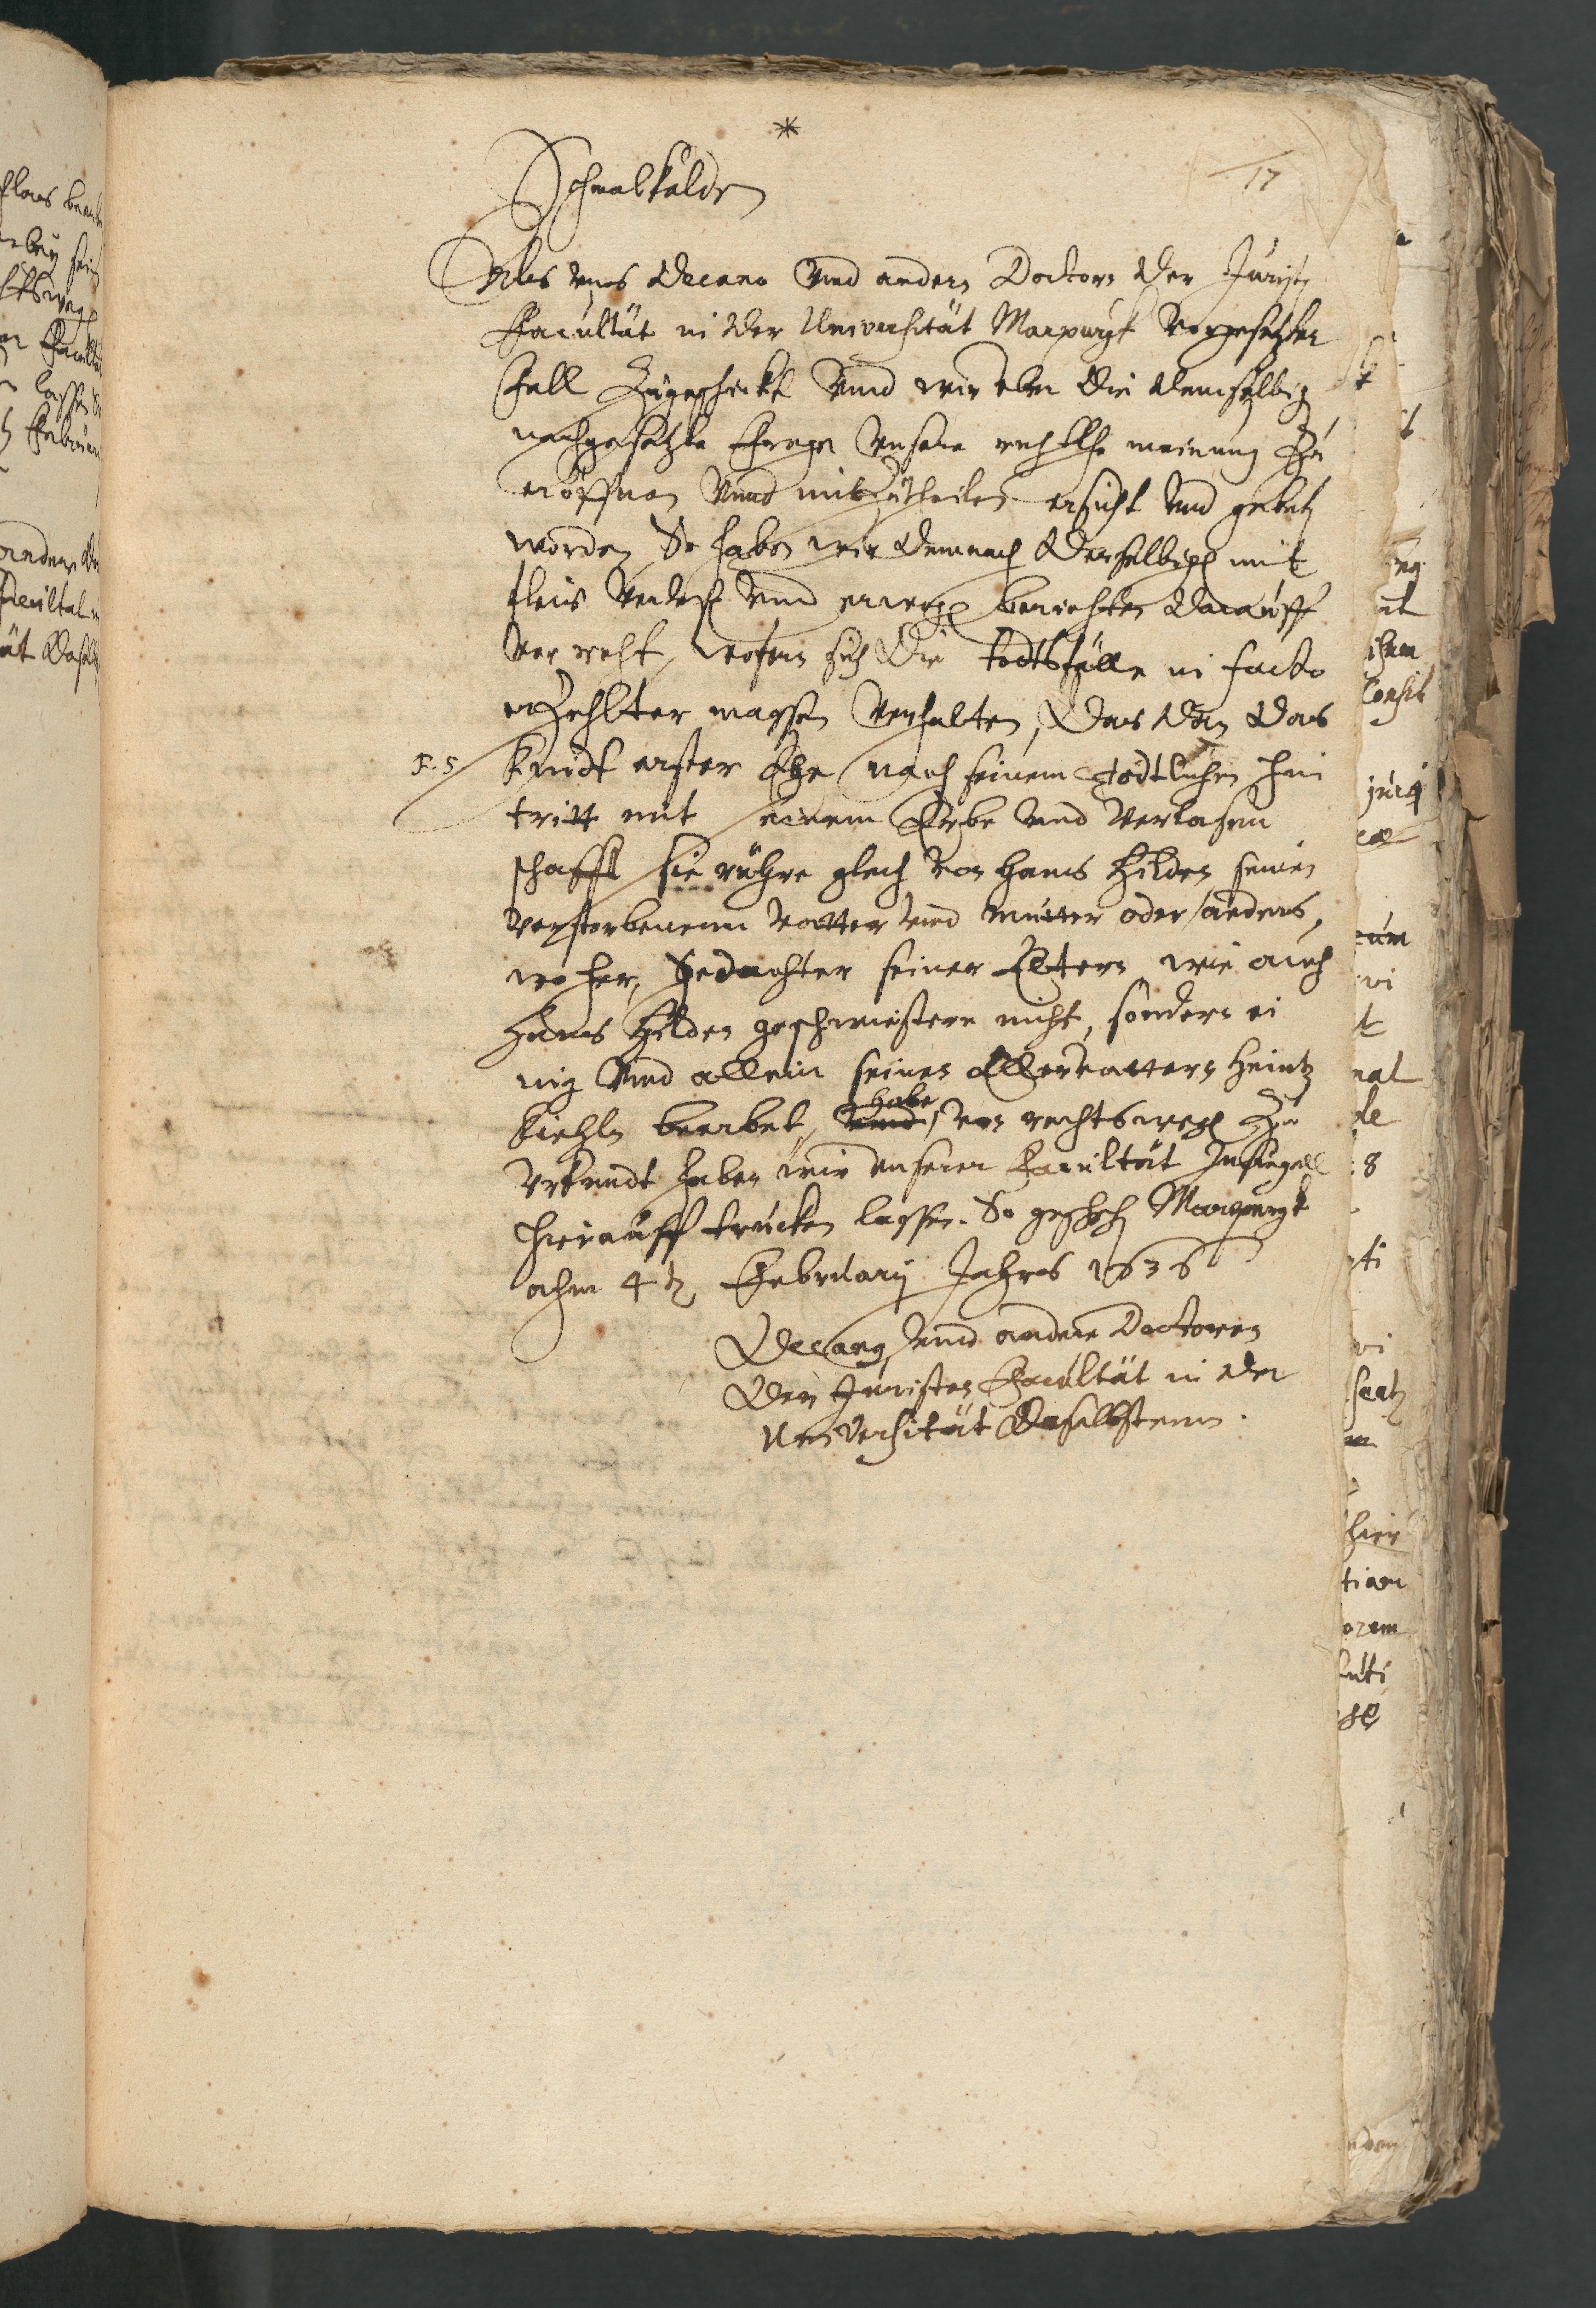 *
17
Schmalkalden
Als uns Decano und andern Doctorn der Juristen
Facultät in der Universität Marpurgk vorgesetzter
fall Zugeschickt und wir uber die demselbigen
nachgesetzte Frage unsere rechtliche meinung Zu
eröffnen unnd mitZutheilen ersucht und gebeten
worden, So haben wir demnach derselbigen mit
fleis verlesen und erwogen berichten darauff
vor recht, wofern sich die todtsfälle in facto
erZehlter massen verhalten, das dan das
F. 5 Kindt erster Ehe nach seinem tödtlichen hin
tritt mit seinem Erbe und verlasen
schafft sie rühre gleich von Hans Hilden seinen
verstorbenenn vatter und mutter oder anders,
woher, gedachter seiner Eltern wie auch
Hans Hilden geschwistere nicht, sondern ei
nig und allein seinen Ellervattern Heintz
Kiehln beerbet, habe, von rechtswegen Zu
Urkundt haben wir unserer Facultät Insiegell
hierauff trucken lassen. So geschehen Marpurgk
ahm 4ten February Jahres 1636
Decanus und andere Doctoren
der Juristen Facultät in der
Universität daselbstenn.